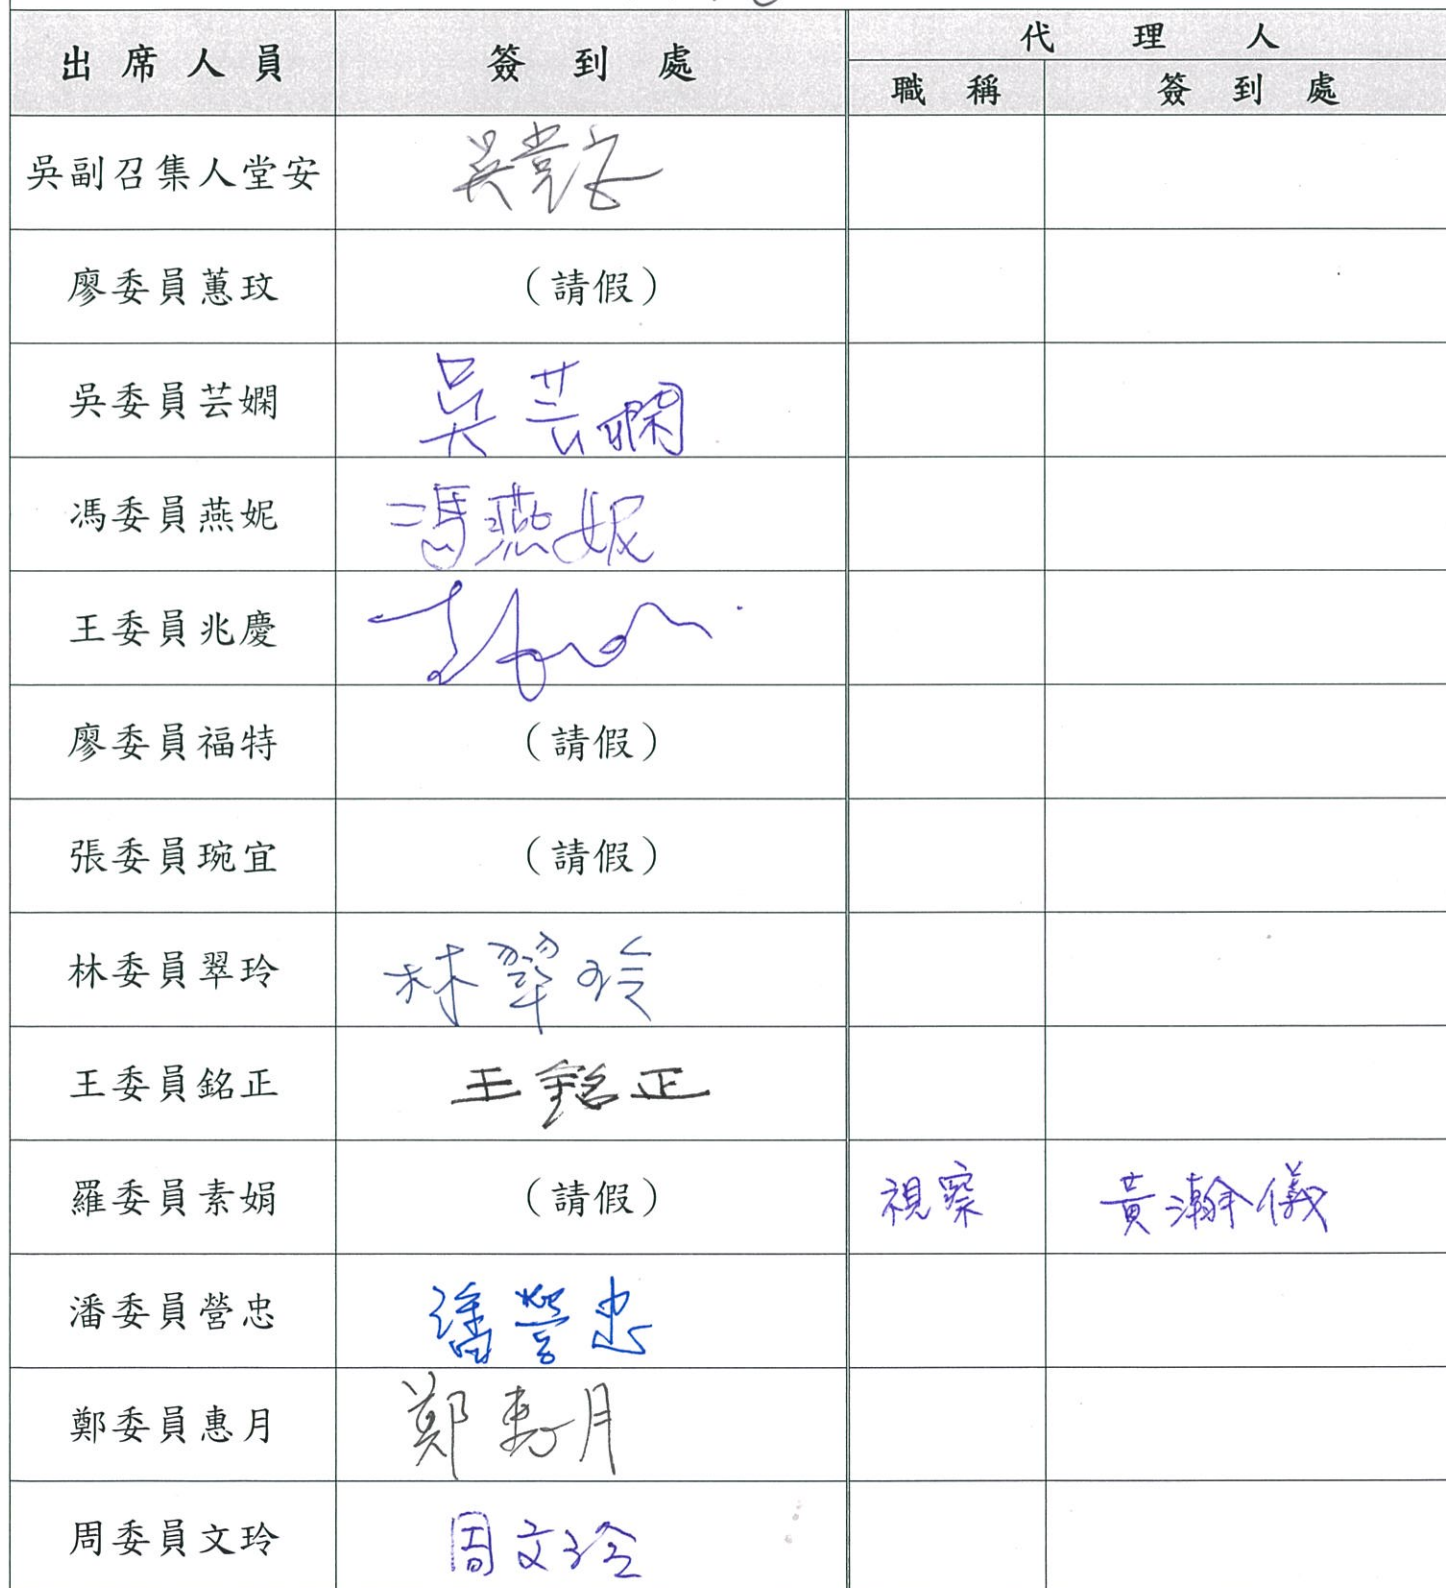 出席人員 簽到處 代理人
職稱 簽到處
吳副召集人堂安 吳堂安
廖委員蕙玟 （請假）
吳委員芸嫻 吳芸嫻
馮委員燕妮 馮燕妮
王委員兆慶
廖委員福特 （請假）
張委員琬宜 （請假）
林委員翠玲 林翠玲
王委員銘正 王銘正
羅委員素娟 （請假） 視察 黃瀚儀
潘委員營忠 潘營忠
鄭委員惠月 鄭惠月
周委員文玲 周文玲